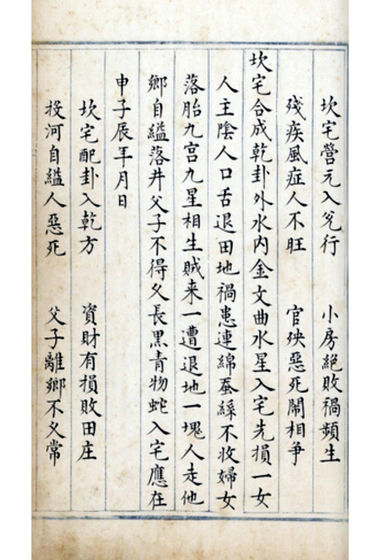 坎宅營元入兌行　小房絕敗禍頻生
殘疾風症人不旺　官殃惡死鬧相爭
坎宅合成乾卦外水內金文曲水星入宅先損一女
人主陰人口舌退田地禍患連綿蚕絲不收婦女
落胎九宮九星相生賊來一遭退地一塊人走他
鄉自縊落井父子不得乆長黑青物蛇入宅應在
申子辰年月日
坎宅配卦入乾方　資財有損敗田庄
投河自縊人惡死　父子離鄉不乆常